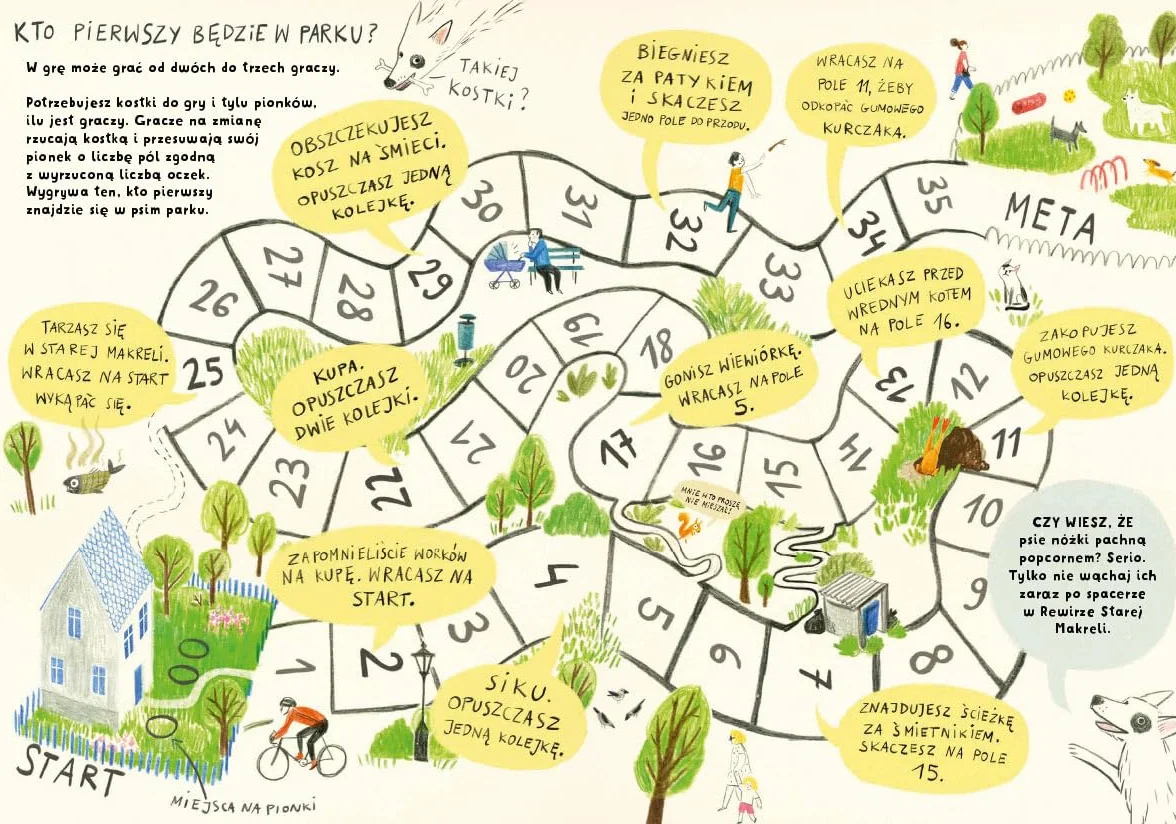 KTO PIERWSZY BĘDZIE W PARKU?
W grę może grać od dwóch do trzech graczy.
Potrzebujesz kostki do gry i tylu pionków,
ilu jest graczy. Gracze na zmianę
rzucają kostką i przesuwają swój
pionek o liczbę pól zgodną
z wyrzuconą liczbą oczek.
Wygrywa ten, kto pierwszy
znajdzie się w psim parku.
TAKIEJ
KOSTKI?
OBSZCZEKUJESZ
KOSZ NA ŚMIECI.
OPUSZCZASZ JEDNĄ
KOLEJKĘ.
BIEGNIESZ
ZA PATYKIEM
I SKACZESZ
JEDNO POLE DO PRZODU.
WRACASZ NA
POLE 11, ŻEBY
ODKOPAĆ GUMOWEGO
KURCZAKA.
META
35
34
33
32
31
30
29
28
27
26
25
24
23
22
21
20
19
18
17
16
15
14
13
12
11
10
9
8
7
6
5
4
3
2
1
TARZASZ SIĘ
W STAREJ MAKRELI.
WRACASZ NA START
WYKĄPAĆ SIĘ.
KUPA.
OPUSZCZASZ
DWIE KOLEJKI.
GONISZ WIEWIÓRKĘ.
WRACASZ NA POLE
5.
UCIEKASZ PRZED
WREDNYM KOTEM
NA POLE 16.
ZAKOPUJESZ
GUMOWEGO KURCZAKA.
OPUSZCZASZ JEDNĄ
KOLEJKĘ.
MNIE W TO PROSZĘ
NIE MIESZAĆ!
ZAPOMNIELIŚCIE WORKÓW
NA KUPĘ. WRACASZ NA
START.
SIKU.
OPUSZCZASZ
JEDNĄ KOLEJKĘ.
ZNAJDUJESZ ŚCIEŻKĘ
ZA ŚMIETNIKIEM.
SKACZESZ NA POLE
15.
CZY WIESZ, ŻE
psie nóżki pachną
popcornem? Serio.
Tylko nie wąchaj ich
zaraz po spacerze
w Rewirze Starej
Makreli.
START
MIEJSCA NA PIONKI